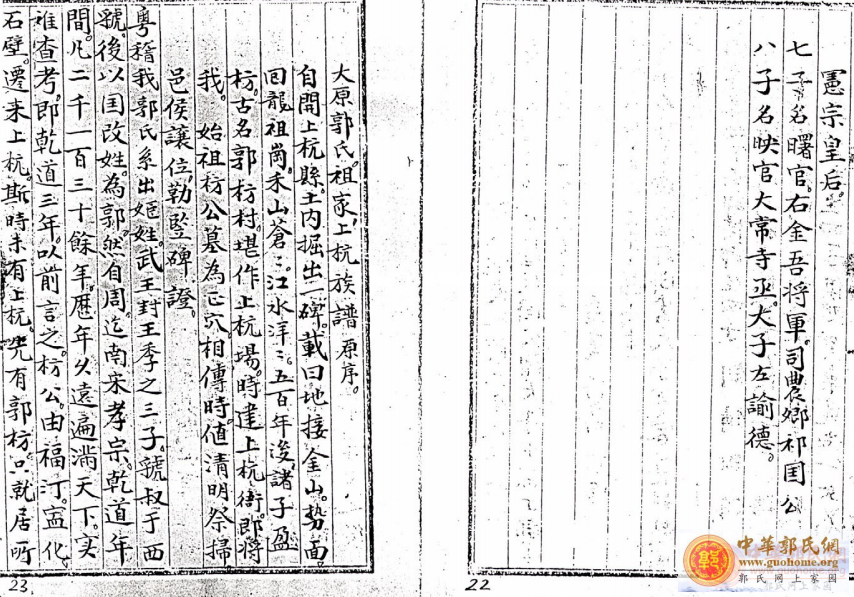 憲宗皇后。
七子名曙官。右金吾將軍。司農鄉祁国公
八子名映官大常寺丞。大子左諭德。
22
大原郭氏。祖家上杭族譜原序。
自開上杭縣。土内掘出一碑。載曰地接金山。勢面
回龍祖崗。禾山蒼〻。江水洋〻。五百年後。諸子盈
枋。古名郭枋村。堪作上杭場。時建上杭衙。即將
我。始祖枋公墓為正穴。相傳時。值清明祭掃
邑侯讓位。勒竪碑證。
粤稽我郭氏系出姬姓。武王封王季之三子。虢叔于西
虢。後以国改姓。為郭。然自周。迄南宋孝宗。乾道年
間。凡二千一百三十餘年。歷年久遠遍滿天下。实
难查考。即乾道三年。以前言之。枋公。由福汀。寕化
石壁。遷来上杭。斯時未有上杭。先有郭枋。只就居所
23
中華郭氏網
www.guohome.org
郭氏网上家园